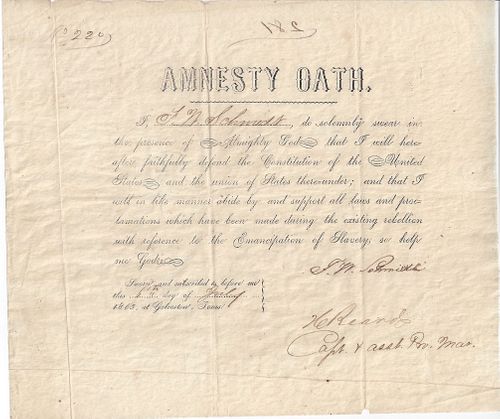 220
281
AMNESTY OATH.
I, J. W. Schmidt, do solemnly swear in
the presence of Almighty God that I will here
after faithfully defend the Constitution of the United
States and the union of States thereunder; and that I
will in like manner abide by and support all laws and proc-
lamations which have been made during the existing rebellion
with reference to the Emancipation of Slavery, so help
me God.
J. W. Schmidt
Sworn and subscribed to before me
this day of
at Galveston, Texas.
Capt. & asst. Pro. Mar.